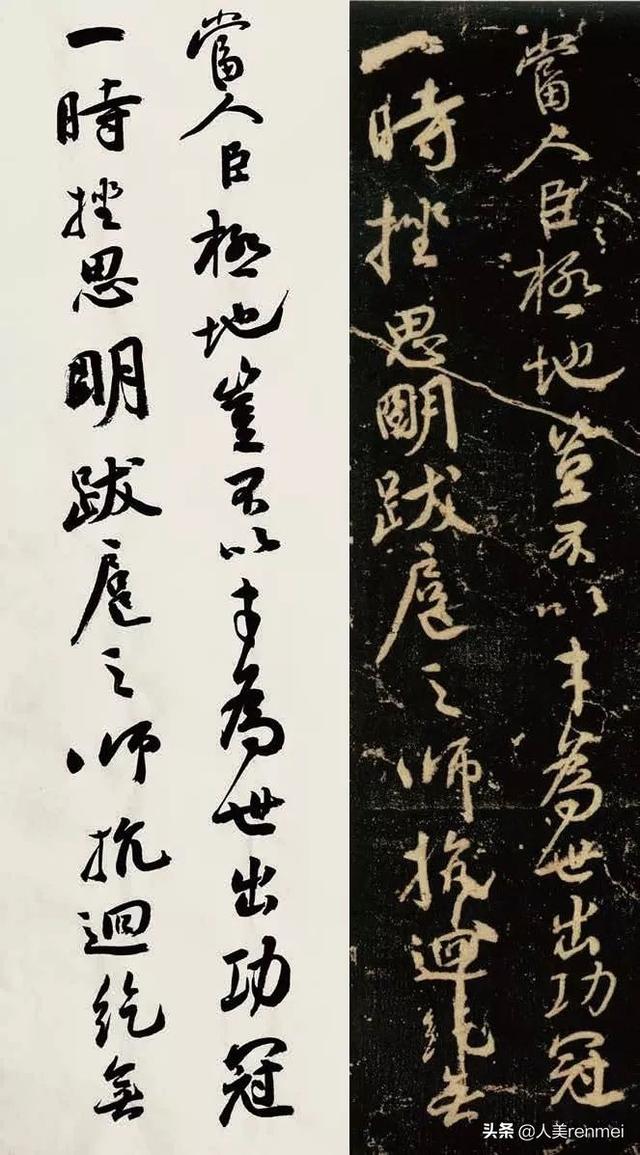 當人臣極地豈不以才為世出功冠
一時挫思明跋扈之師抗迴紇無
當人臣極地豈不以才為世出功冠
一時挫思明跋扈之師抗迴紇無
头条 @人美renmei